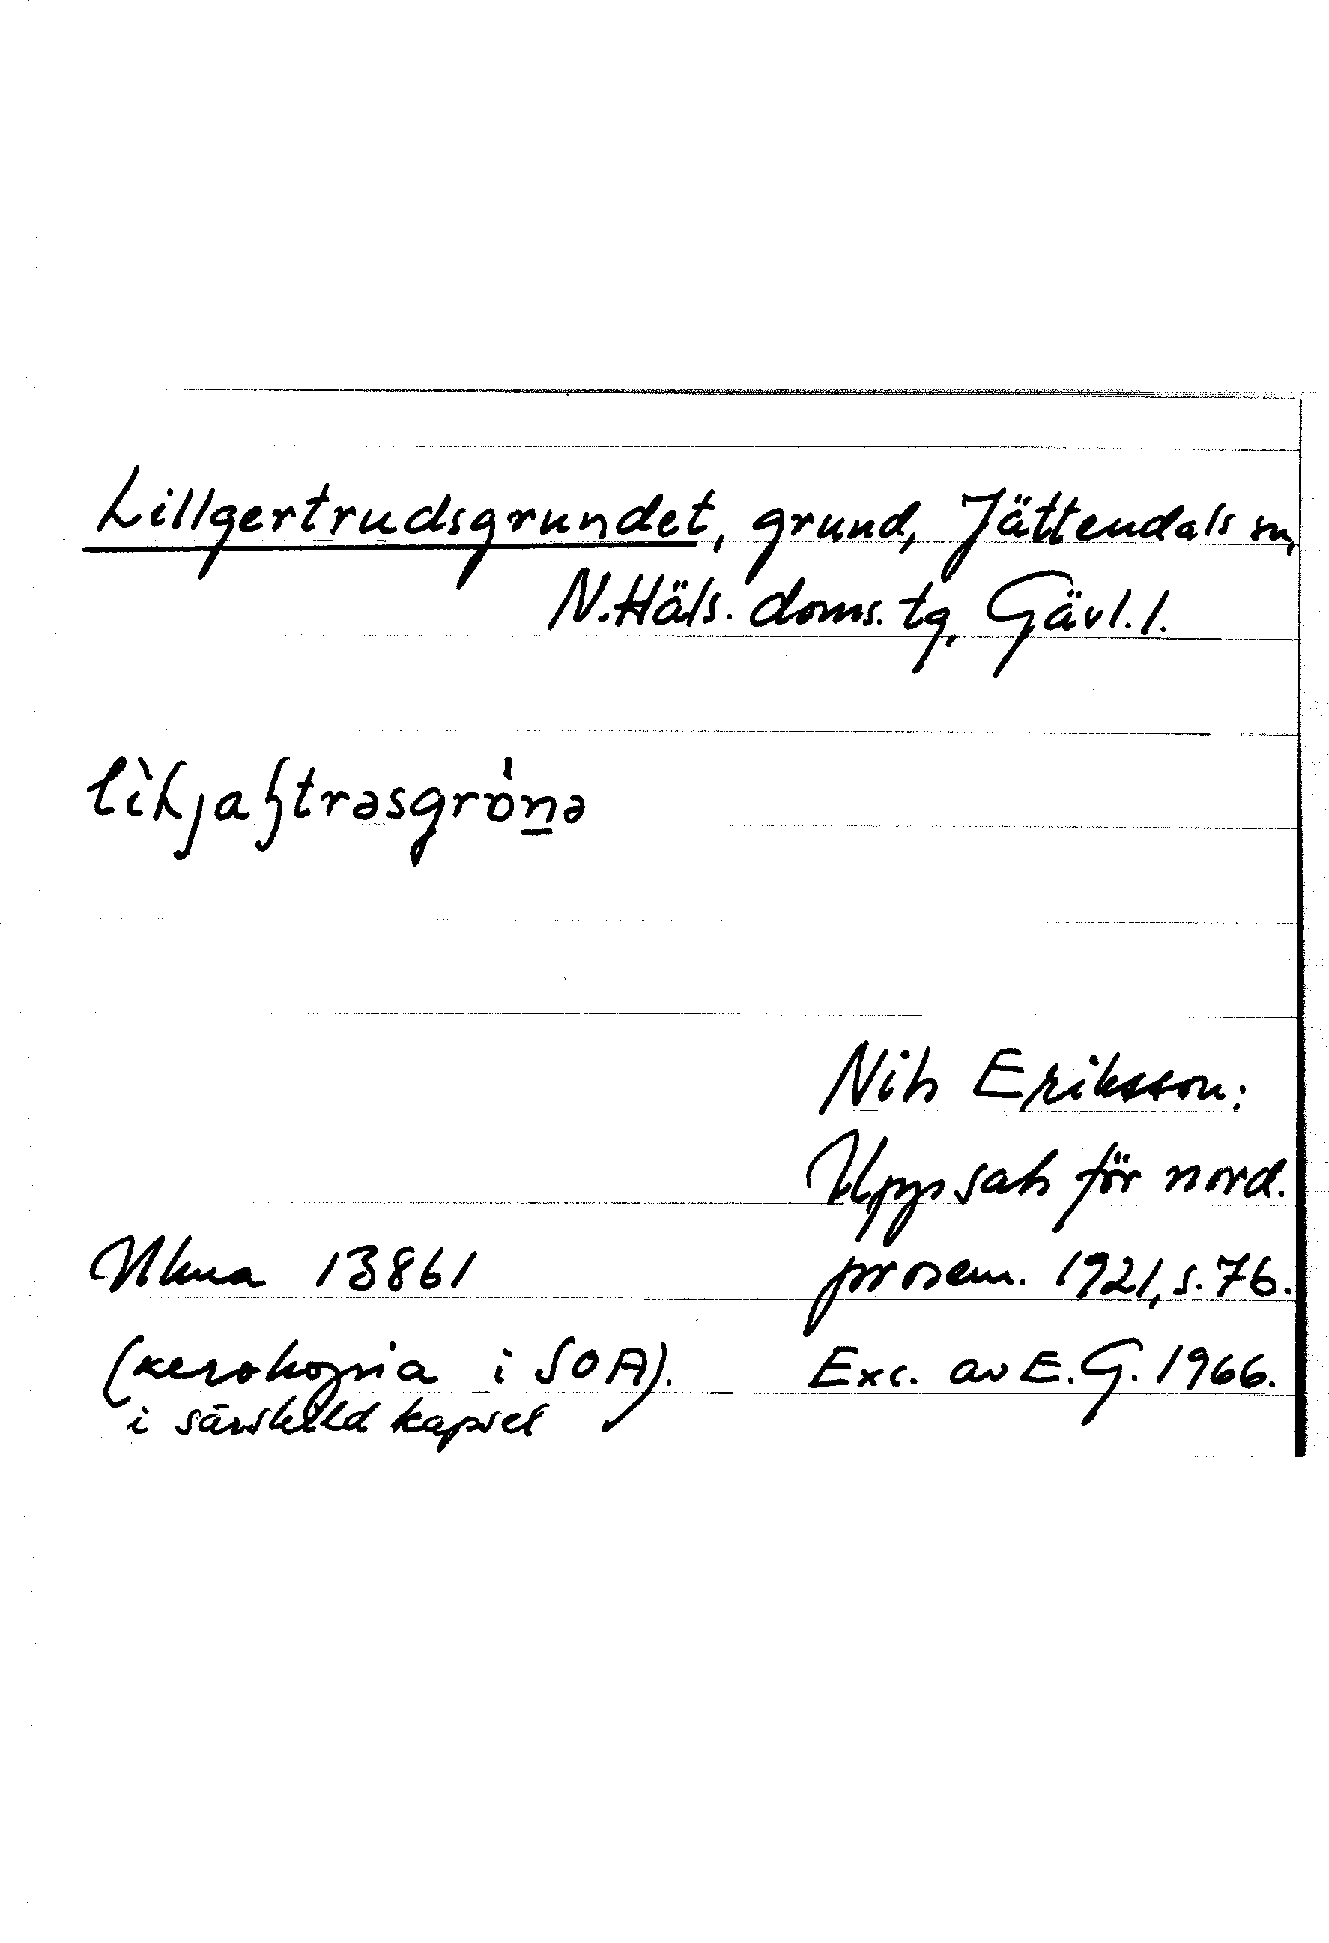 Lillgertrudsgrundet, grund, Jättendals sn,
N. Häls. doms. tg, Gävl. l.
Nils Eriksson:
Uppsats för nord.
Ukna 13861 prosem. 1921, s. 76.
(xerokopia i SOA). Exc. av E. G. 1966.
i särskild kapsel